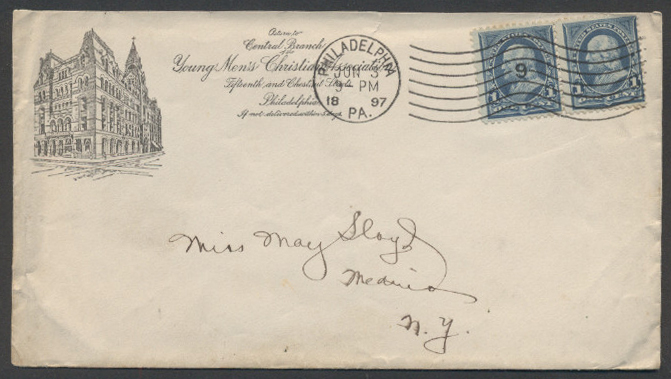 Return to
Central Branch
of the
Young Men's Christian Association
Fifteenth and Chestnut Streets
Philadelphia
If not delivered within 5 days
PHILADELPHIA
JUN 3
9 PM
18 97
PA.
9
1 1
1 1
Miss May Lloyd
Medina
N. Y.